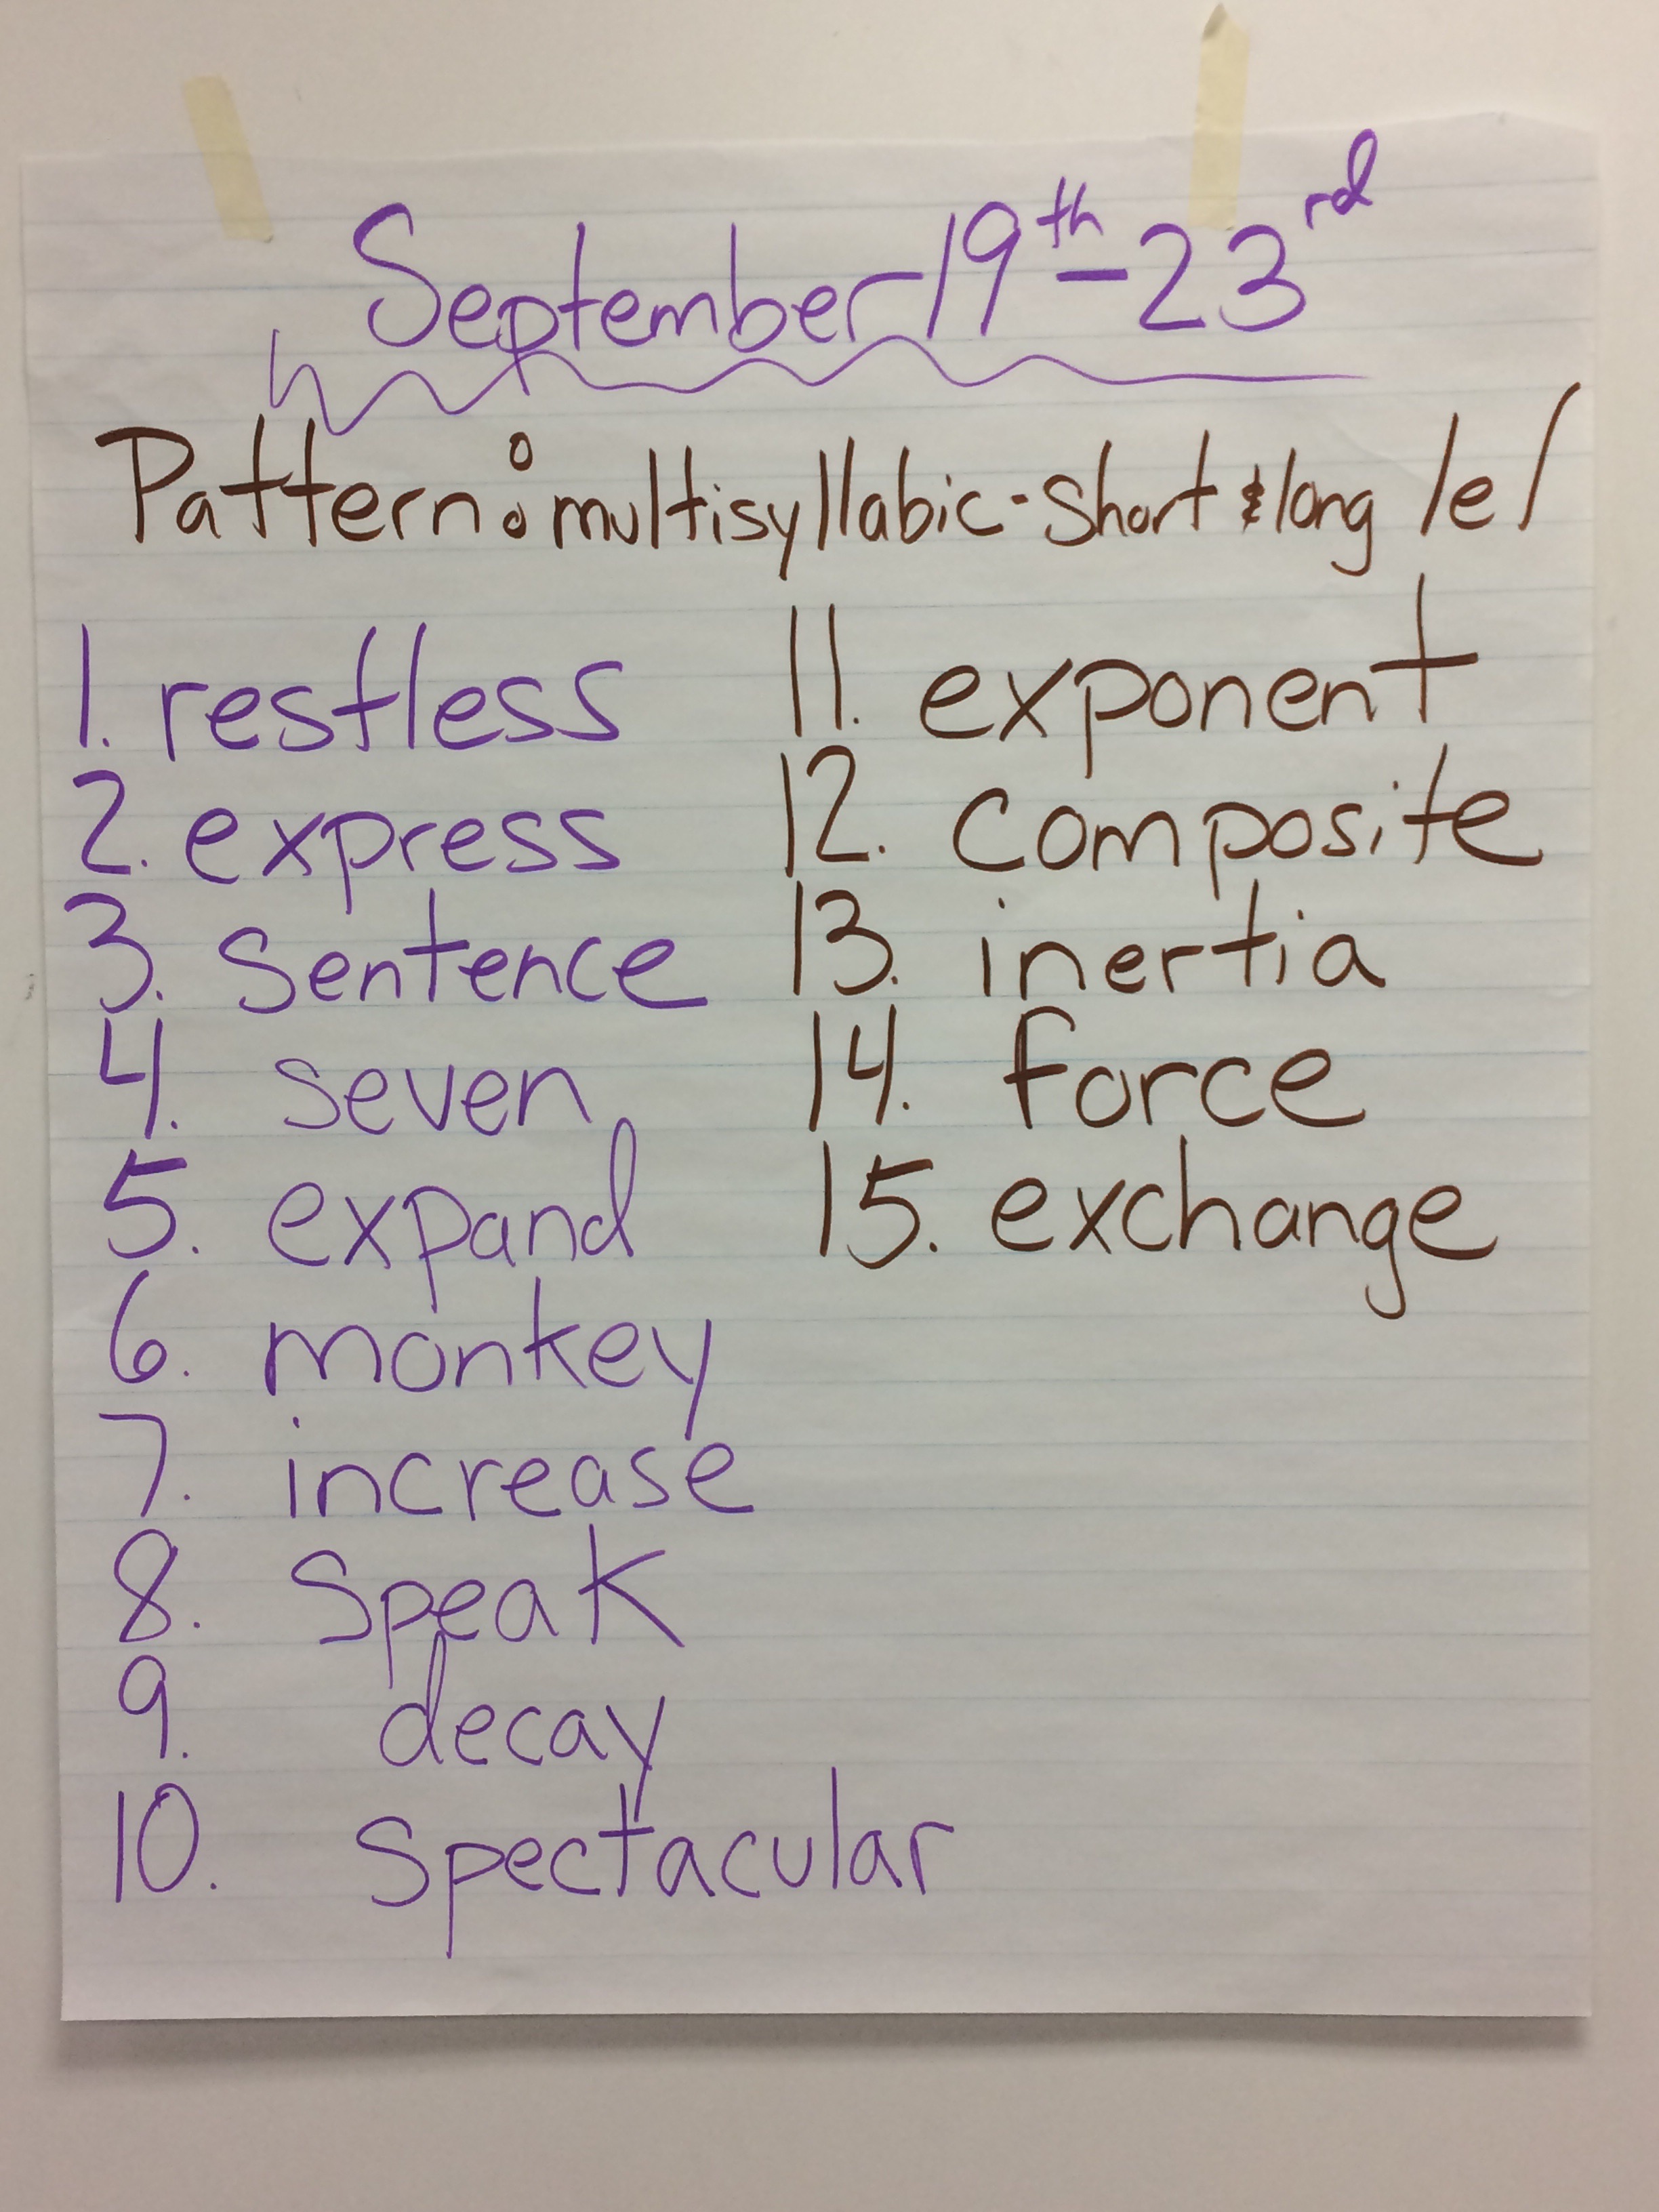 September 19th - 23rd
Pattern: multisyllabic - Short & long /e/
1. restless
2. express
3. Sentence
4. seven
5. expand
6. monkey
7. increase
8. Speak
9. decay
10. Spectacular
11. exponent
12. composite
13. inertia
14. force
15. exchange